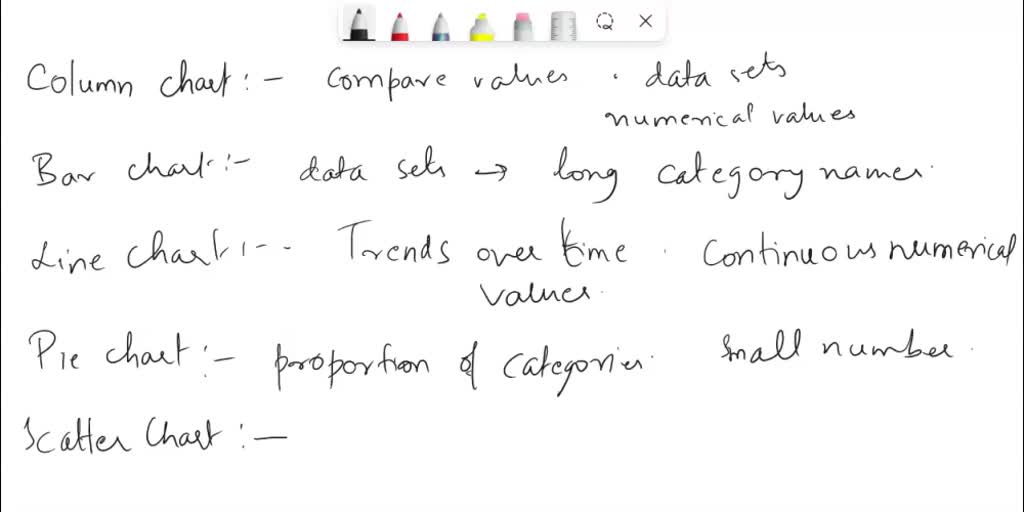 Column chart :- Compare values . data sets
numerical values
Bar chart :- data sets → long category names.
Line chart :-- Trends over time . Continuous numerical
values.
Pie chart :- proportion of categories. small number.
Scatter Chart :-